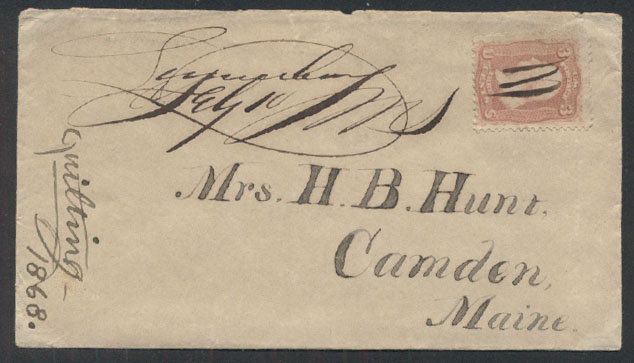 July 10 Ms
Mrs. H. B. Hunt.
Camden,
Maine.
Quilting
1868.